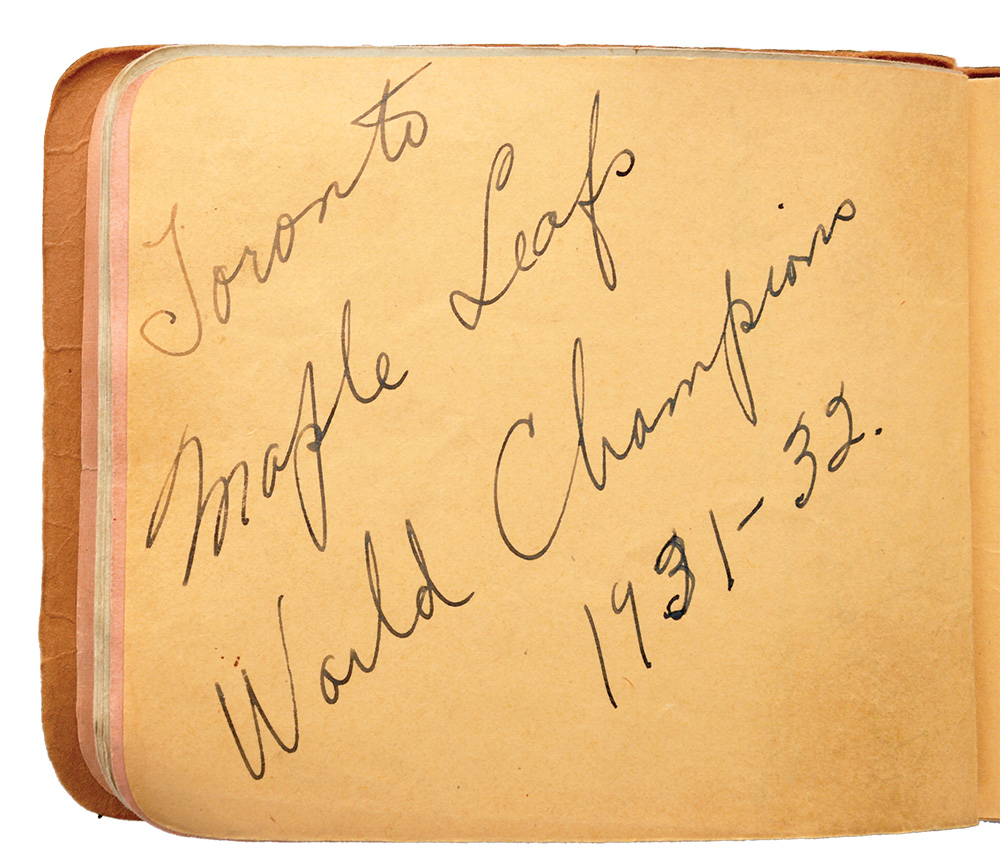 Toronto
Maple Leafs
World Champions
1931-32.